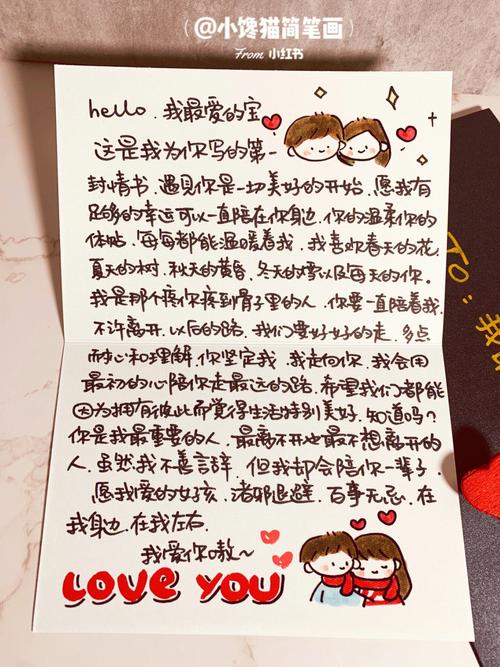 @小馋猫简笔画
From 小红书
hello.我最爱的宝
这是我为你写的第一
封情书.遇见你是一切美好的开始.愿我有
足够的幸运可以一直陪在你身边.你的温柔你的
体贴.每每都能温暖着我.我喜欢春天的花.
夏天的树.秋天的黄昏.冬天的雪以及每天的你.
我是那个疼你疼到骨子里的人.你要一直陪着我.
不许离开.以后的路.我们要好好的走.多点
耐心和理解.你坚定我.我走向你.我会用
最初的心陪你走最远的路.希望我们都能
因为拥有彼此而觉得生活特别美好.知道吗?
你是我最重要的人.最离不开也最不想离开的
人.虽然我不善言辞.但我却会陪你一辈子
愿我爱的女孩.诸邪退避.百事无忌.在
我身边.在我左右.
我爱你嗷~
LOVE YOU
TO:我